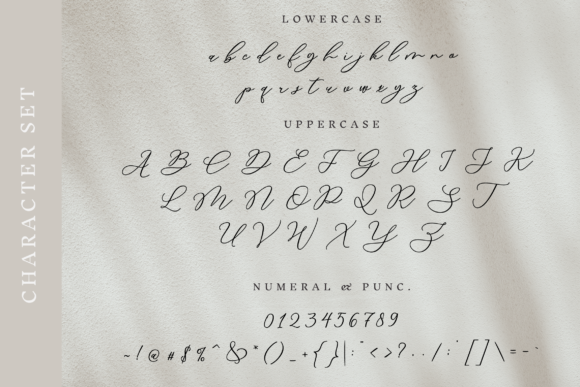 CHARACTER SET
LOWERCASE
a b c d e f g h i j k l m n o
p q r s t u v w x y z
UPPERCASE
A B C D E F G H I J K
L M N O P Q R S T
U V W X Y Z
NUMERAL & PUNC.
0123456789
~ ! @ # $ % ^ & * ( ) _ + { } | : " < > ? . . / : ' [ ] \ = - `